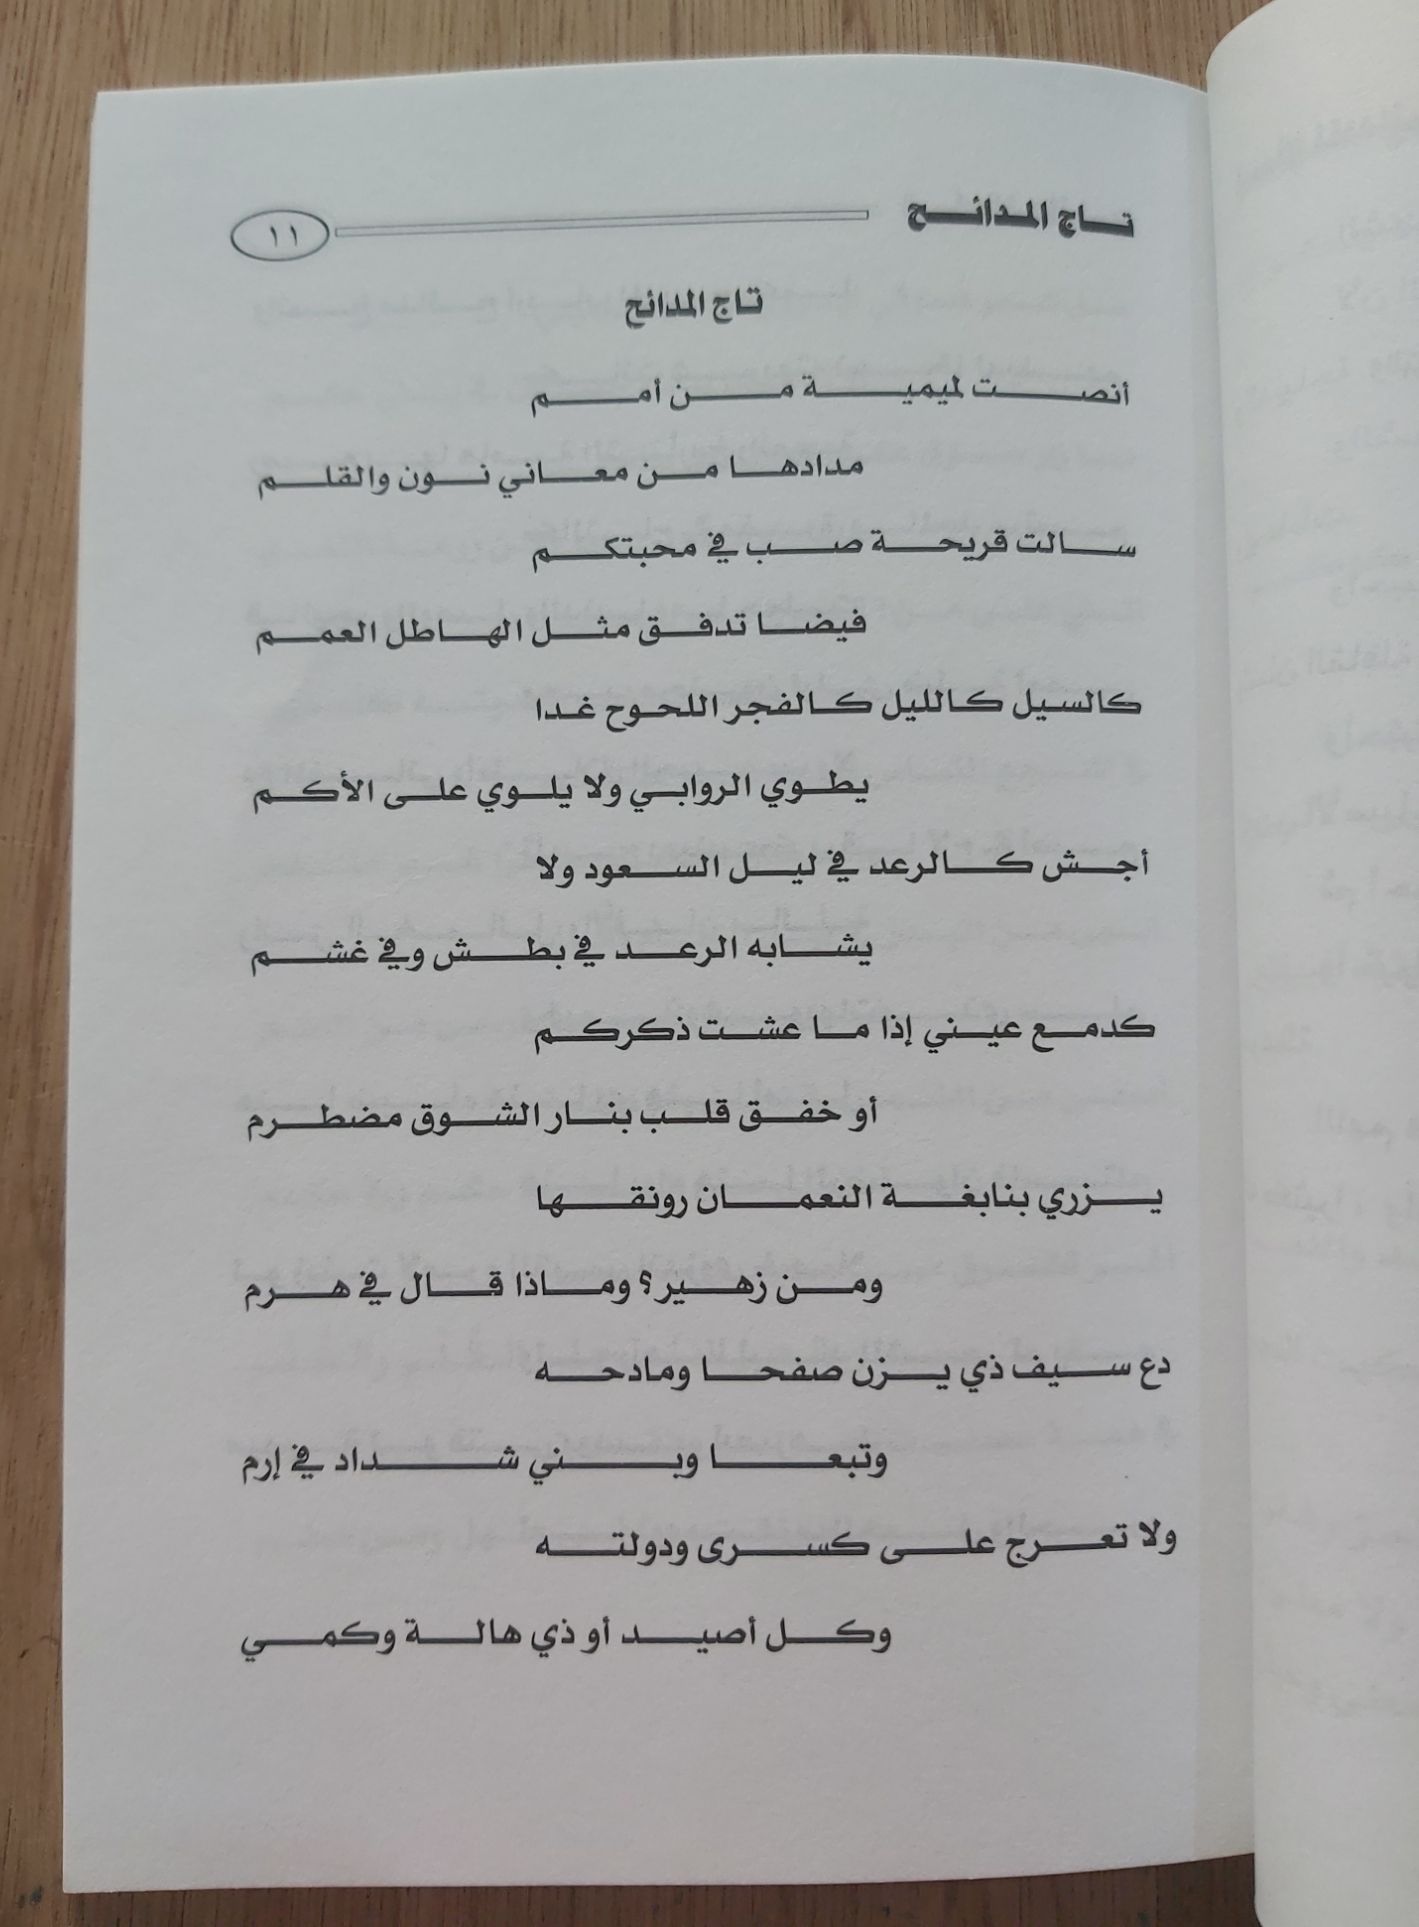 تاج المدائح
١١
تاج المدائح
أنصت لميمية من أمم
مدادها من معاني نون والقلم
سالت قريحة صب في محبتكم
فيضا تدفق مثل الهاطل العمم
كالسيل كالليل كالفجر اللحوح غدا
يطوي الروابي ولا يلوي على الأكم
أجش كالرعد في ليل السعود ولا
يشابه الرعد في بطش وفي غشم
كدمع عيني إذا ما عشت ذكركم
أو خفق قلب بنار الشوق مضطرم
يزري بنابغة النعمان رونقها
ومن زهير؟ وماذا قال في هرم
دع سيف ذي يزن صفحا ومادحه
وتبعا وبني شداد في إرم
ولا تعرج على كسرى ودولته
وكل أصيد أو ذي هالة وكمي